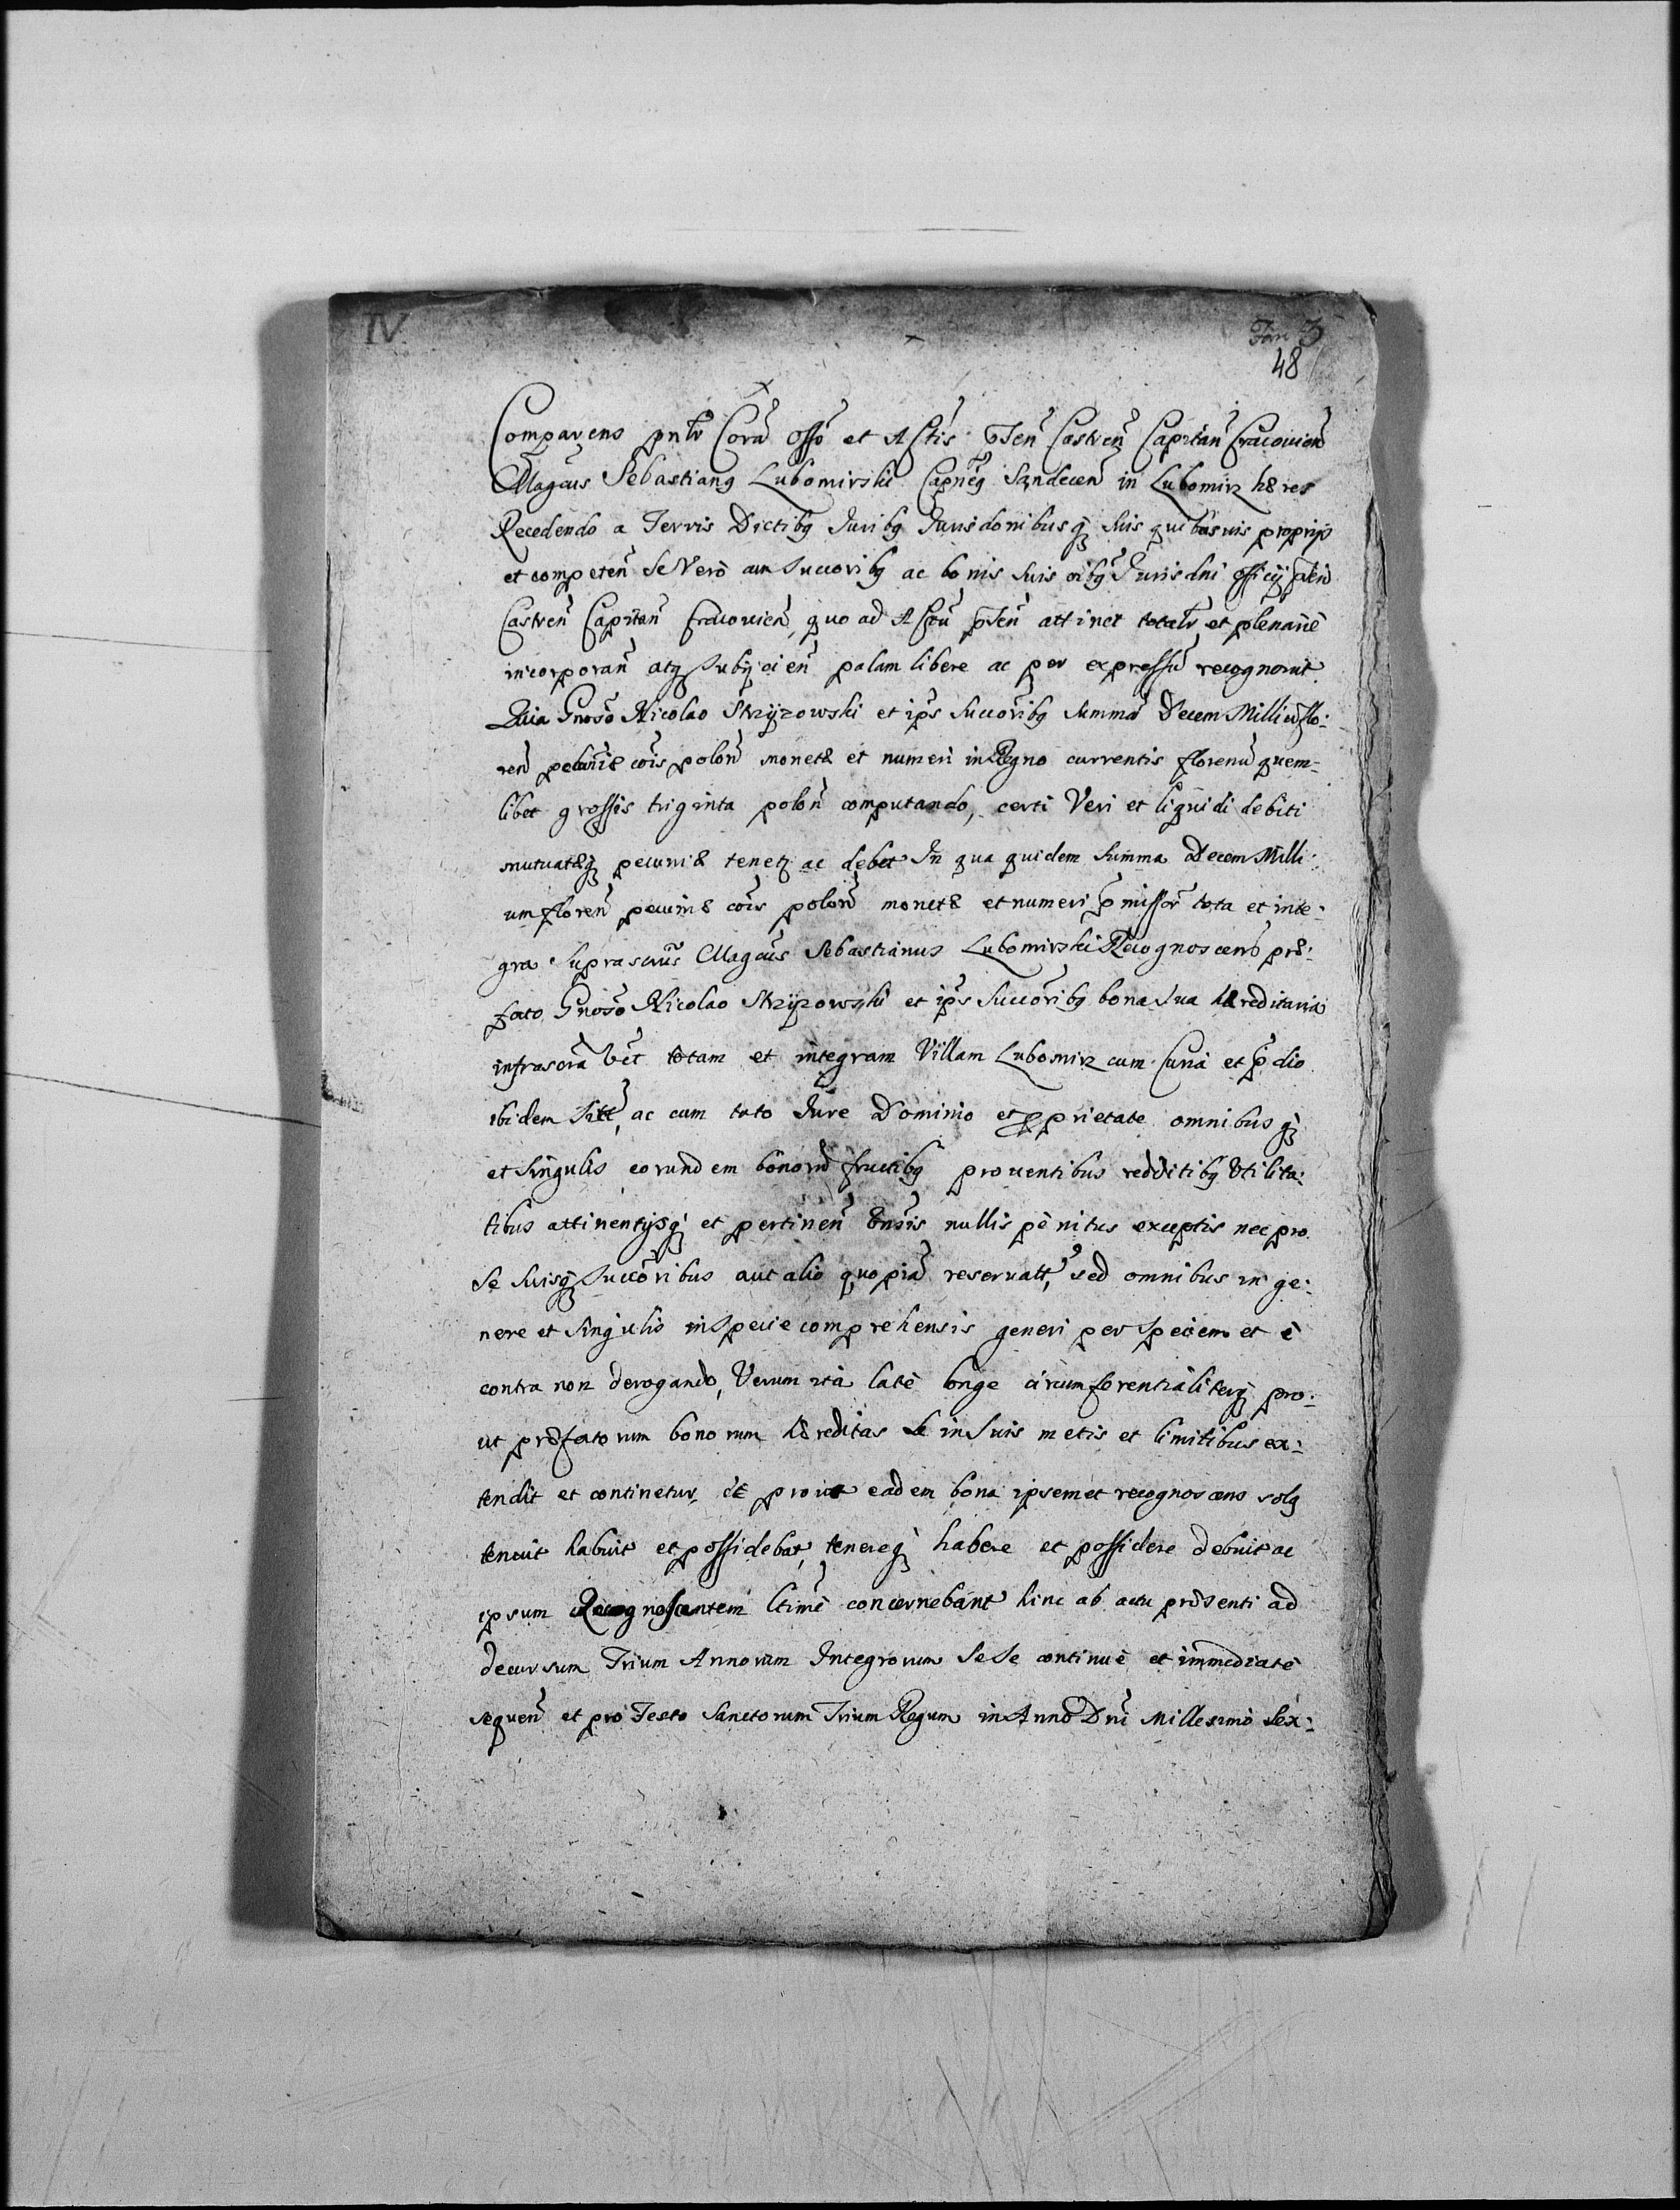 IV.
48
Comparens pntr Corã offo et Actis pñten Castren Capitan Cracouien
Magcus Sebastianq Lubomirski Capneq Sandecen in Lubomirz hæres
Recedendo a Terris Dictibq Juribq Jurisdonibusq suis quibusuis proprijs
et competen Se Verò cum succoribq ac bonis suis oibq Jurisdni officij pñtis
Castren Capitan Cracouien, quo ad Actũ pñten attinet totalr et plenariè
incorporan atq subijcien palam libere ac per expressũ recognouit.
Quia Gnoso Nicolao Strzyzowski et ips succoribq summã Decem Milliũ flo:
ren pecuniæ cois polon monetæ et numeri in Regno currentis florenũ quem-
libet grossis triginta polon computando, certi Veri et liquidi debiti
mutuatæq pecuniæ tenetr ac debet In qua quidem summa Decem Milli:
um floren pecuniæ cois polon monetæ et numeri pmissor tota et inte:
gra suprascrus Magcus Sebastianus Lubomirski Recognoscens præ:
fato Gnoso Nicolao Strzyzowski et ips succoribq bona sua hæreditaria
infrascra vẽt totam et integram Villam Lubomirz cum Curia et pdio
ibidem sitt, ac cum toto Jure Dominio et pprietate omnibusq
et singulis eorundem bonorũ fructibq prouentibus redditibq Vtilita:
tibus attinentijsq et pertinen vnis nullis pènitus exceptis nec pro
se suisq succoribus aut alio quopiã reseruatt, sed omnibus in ge:
nere et singulis in specie comprehensis generi per speciem et è
contra non derogando, Verum ità latè longe circumferentialiterq pro:
ut præfatorum bonorum hæreditas se in suis metis et limitibus ex:
tendit et continetur et prout eadem bona ipsemet recognoscens solq
tenuit habuit et possidebat, tenereq habere et possidere debuit ac
ipsum Recognoscentem ltimè concernebant hinc ab actu præsenti ad
decursum Trium Annorum Integrorum sese continuè et immediatè
sequen et pro Festo Sanctorum Trium Regum in Anno Dni Millesimo sex: